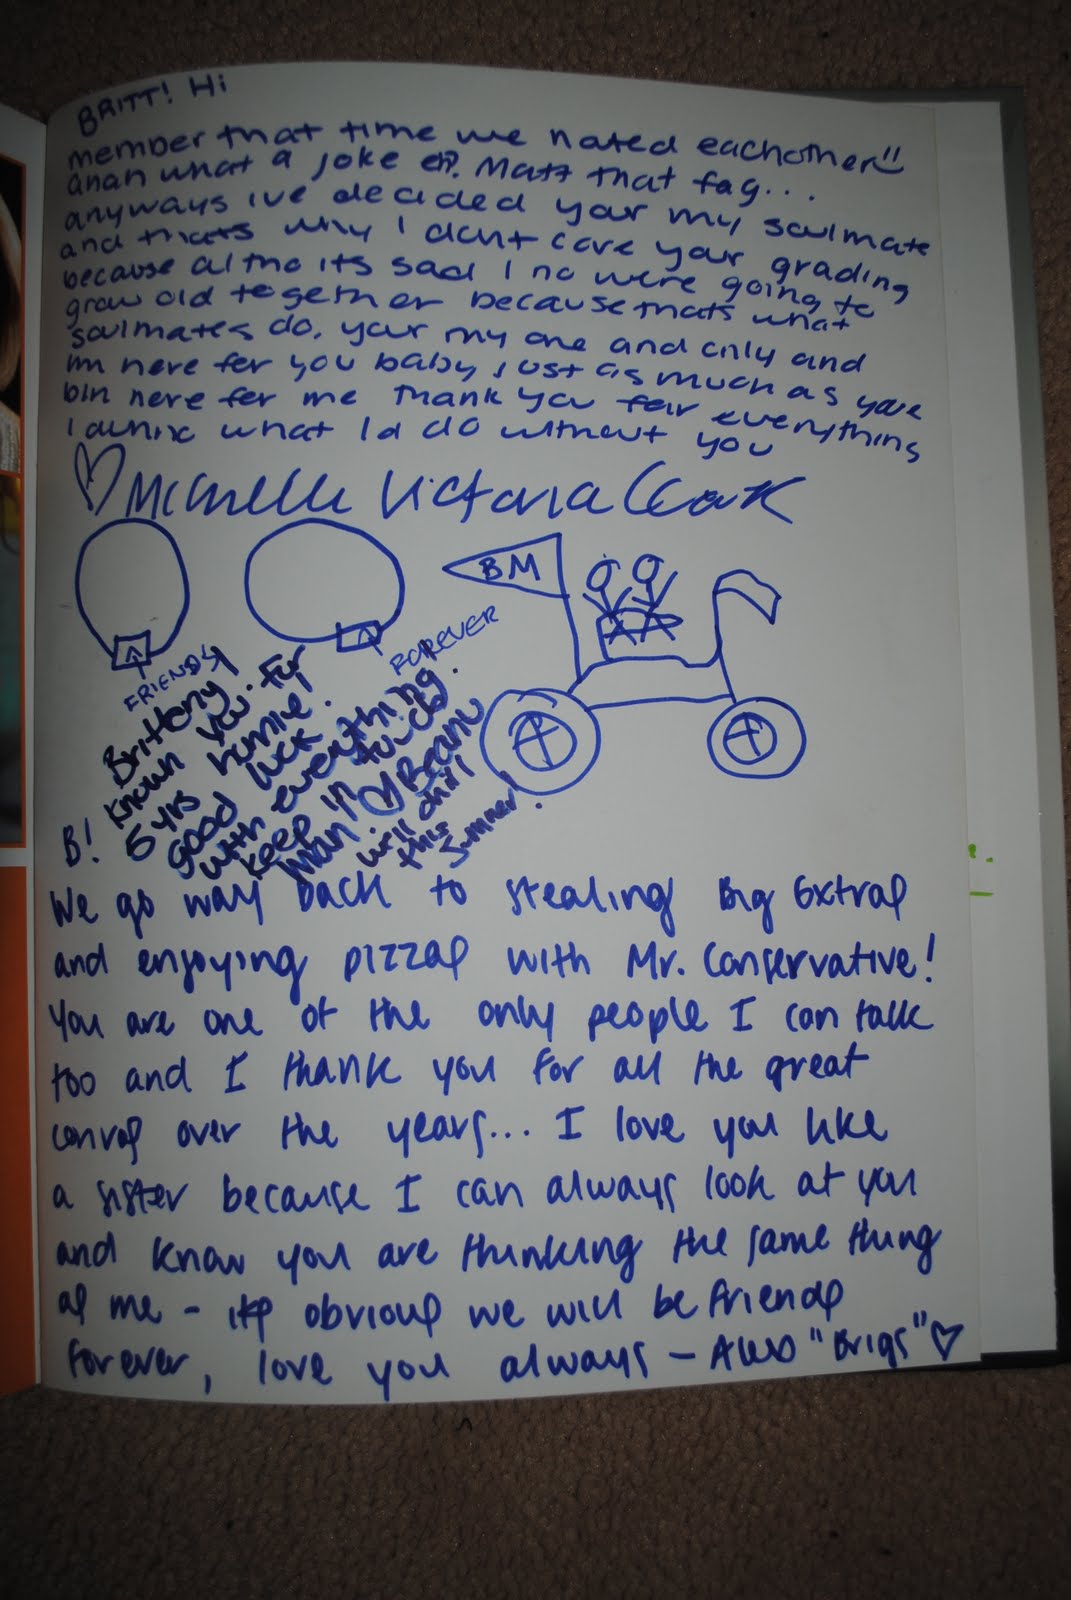 BRITT! Hi
member that time we hated eachother!!
ahah what a joke eh. Matt that fag...
anyways ive decided your my soulmate
and thats why I dont care your grading
because altho its sad I no were going to
grow old together because thats what
soulmates do, your my one and only and
im here fer you baby, just as much as youve
bin here fer me thank you for everything
I dunno what Id do without you
♡ Michelle Victoria
BM
FRIENDS
FOREVER
Brittany!
Known you for
5 yrs hunnie!
good luck
with everything.
keep in touch
man
will chill
this
summer!
B!
We go way back to stealing Big Extras
and enjoying pizzas with Mr. Conservative!
You are one of the only people I can talk
too and I thank you for all the great
convos over the years... I love you like
a sister because I can always look at you
and know you are thinking the same thing
as me - its obvious we will be friends
forever, love you always - "Brigs" ♡